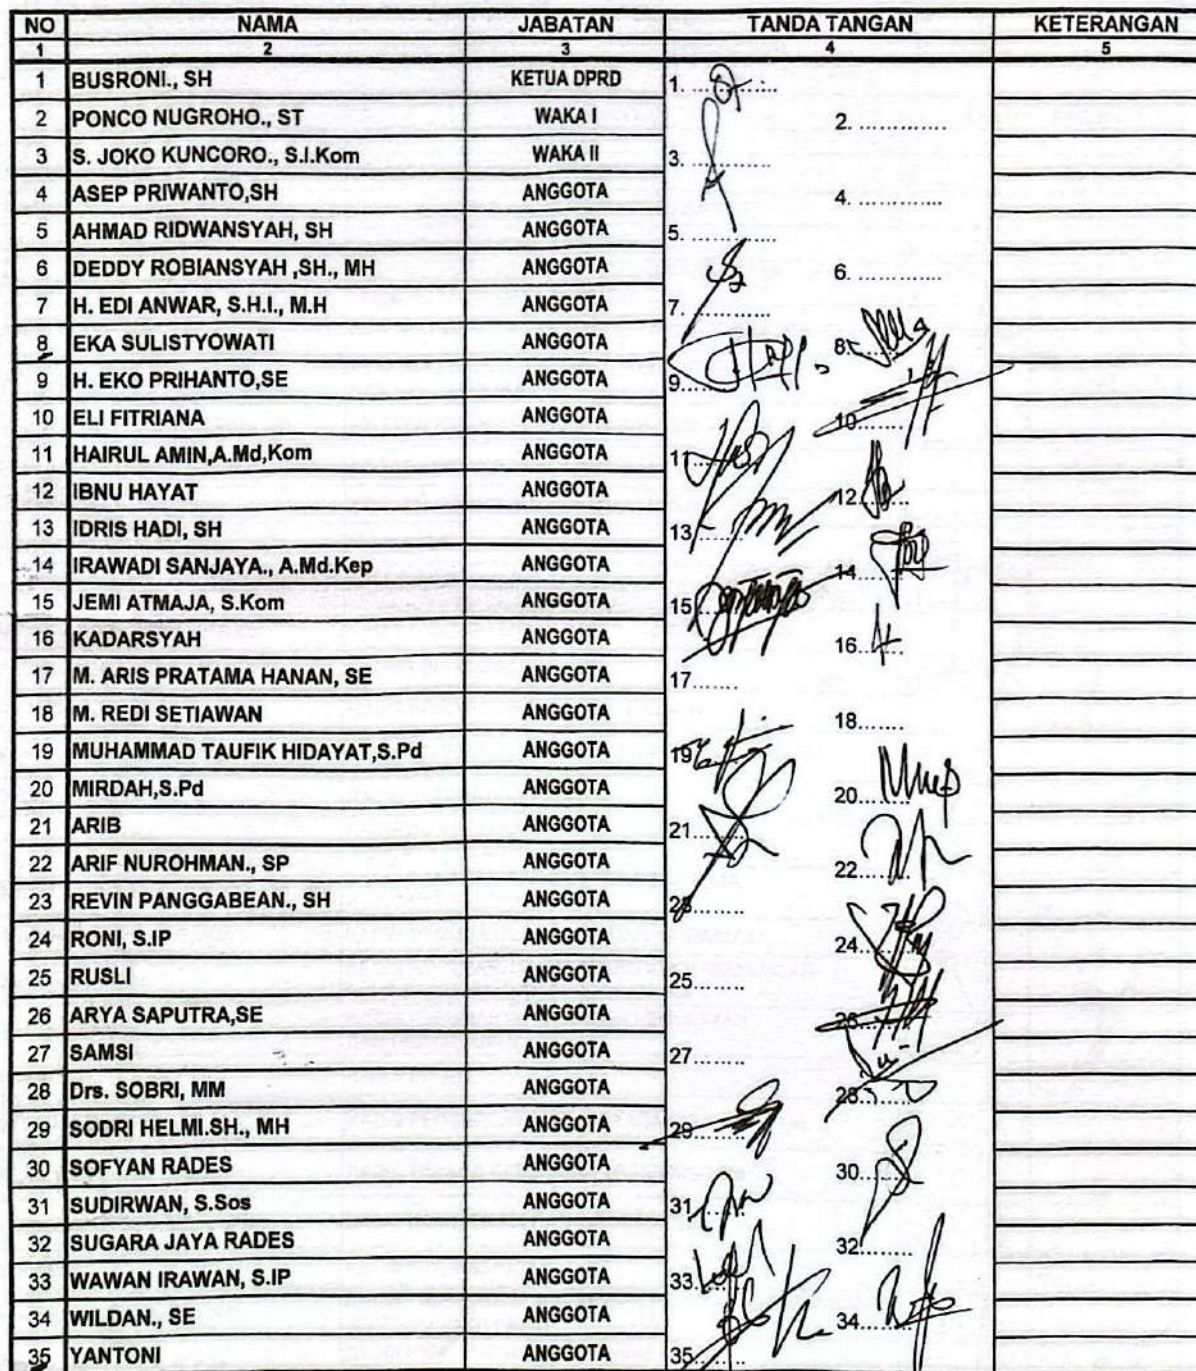 NO NAMA JABATAN TANDA TANGAN KETERANGAN
1 2 3 4 5
1 BUSRONI., SH KETUA DPRD 1. ...........
2 PONCO NUGROHO., ST WAKA I 2. .............
3 S. JOKO KUNCORO., S.I.Kom WAKA II 3. .............
4 ASEP PRIWANTO,SH ANGGOTA 4. .............
5 AHMAD RIDWANSYAH, SH ANGGOTA 5. .............
6 DEDDY ROBIANSYAH ,SH., MH ANGGOTA 6. .............
7 H. EDI ANWAR, S.H.I., M.H ANGGOTA 7. .............
8 EKA SULISTYOWATI ANGGOTA 8.........
9 H. EKO PRIHANTO,SE ANGGOTA 9.........
10 ELI FITRIANA ANGGOTA 10........
11 HAIRUL AMIN,A.Md,Kom ANGGOTA 11........
12 IBNU HAYAT ANGGOTA 12........
13 IDRIS HADI, SH ANGGOTA 13........
14 IRAWADI SANJAYA., A.Md.Kep ANGGOTA 14........
15 JEMI ATMAJA, S.Kom ANGGOTA 15........
16 KADARSYAH ANGGOTA 16........
17 M. ARIS PRATAMA HANAN, SE ANGGOTA 17.......
18 M. REDI SETIAWAN ANGGOTA 18.......
19 MUHAMMAD TAUFIK HIDAYAT,S.Pd ANGGOTA 19........
20 MIRDAH,S.Pd ANGGOTA 20........
21 ARIB ANGGOTA 21........
22 ARIF NUROHMAN., SP ANGGOTA 22........
23 REVIN PANGGABEAN., SH ANGGOTA 23........
24 RONI, S.IP ANGGOTA 24........
25 RUSLI ANGGOTA 25........
26 ARYA SAPUTRA,SE ANGGOTA 26........
27 SAMSI ANGGOTA 27........
28 Drs. SOBRI, MM ANGGOTA 28........
29 SODRI HELMI.SH., MH ANGGOTA 29........
30 SOFYAN RADES ANGGOTA 30........
31 SUDIRWAN, S.Sos ANGGOTA 31........
32 SUGARA JAYA RADES ANGGOTA 32........
33 WAWAN IRAWAN, S.IP ANGGOTA 33........
34 WILDAN., SE ANGGOTA 34........
35 YANTONI ANGGOTA 35........